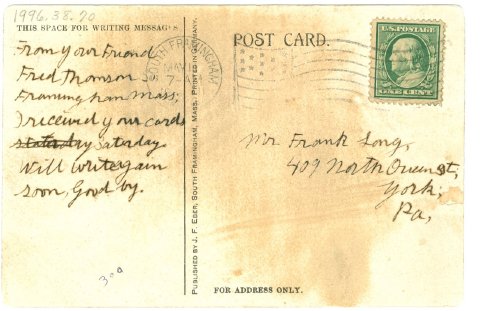 1996.38.70
THIS SPACE FOR WRITING MESSAGES
From your Friend
Fred Thomson
Framingham Mass,
I received your cards
saterday saterday.
Will write again
soon, Good by.
300
PUBLISHED BY J. F. EBER, SOUTH FRAMINGHAM, MASS. PRINTED IN GERMANY.
SOUTH FRAMINGHAM
MAY
7-A
POST CARD.
U.S. POSTAGE
ONE CENT
Mr Frank Long,
409 North Queen st,
York,
Pa,
FOR ADDRESS ONLY.